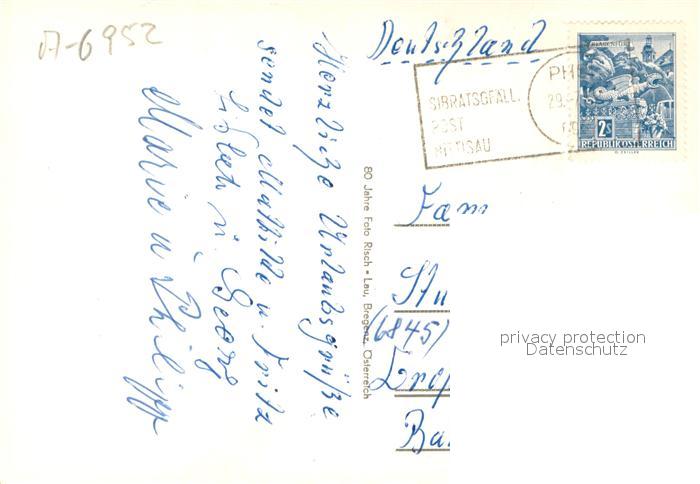 A-6952
Herzliche Urlaubsgrüße
sendet Mathilde u. Fritz
u. Georg
Marie u Philipp
80 Jahre Foto Risch-Lau, Bregenz, Österreich
Deutschland
SIBRATSGFÄLL
POST
HITTISAU
29.
KLAGENFURT
2S
REPUBLIK ÖSTERREICH
Fam
Stu
(6845)
Groß
Ba
privacy protection
Datenschutz